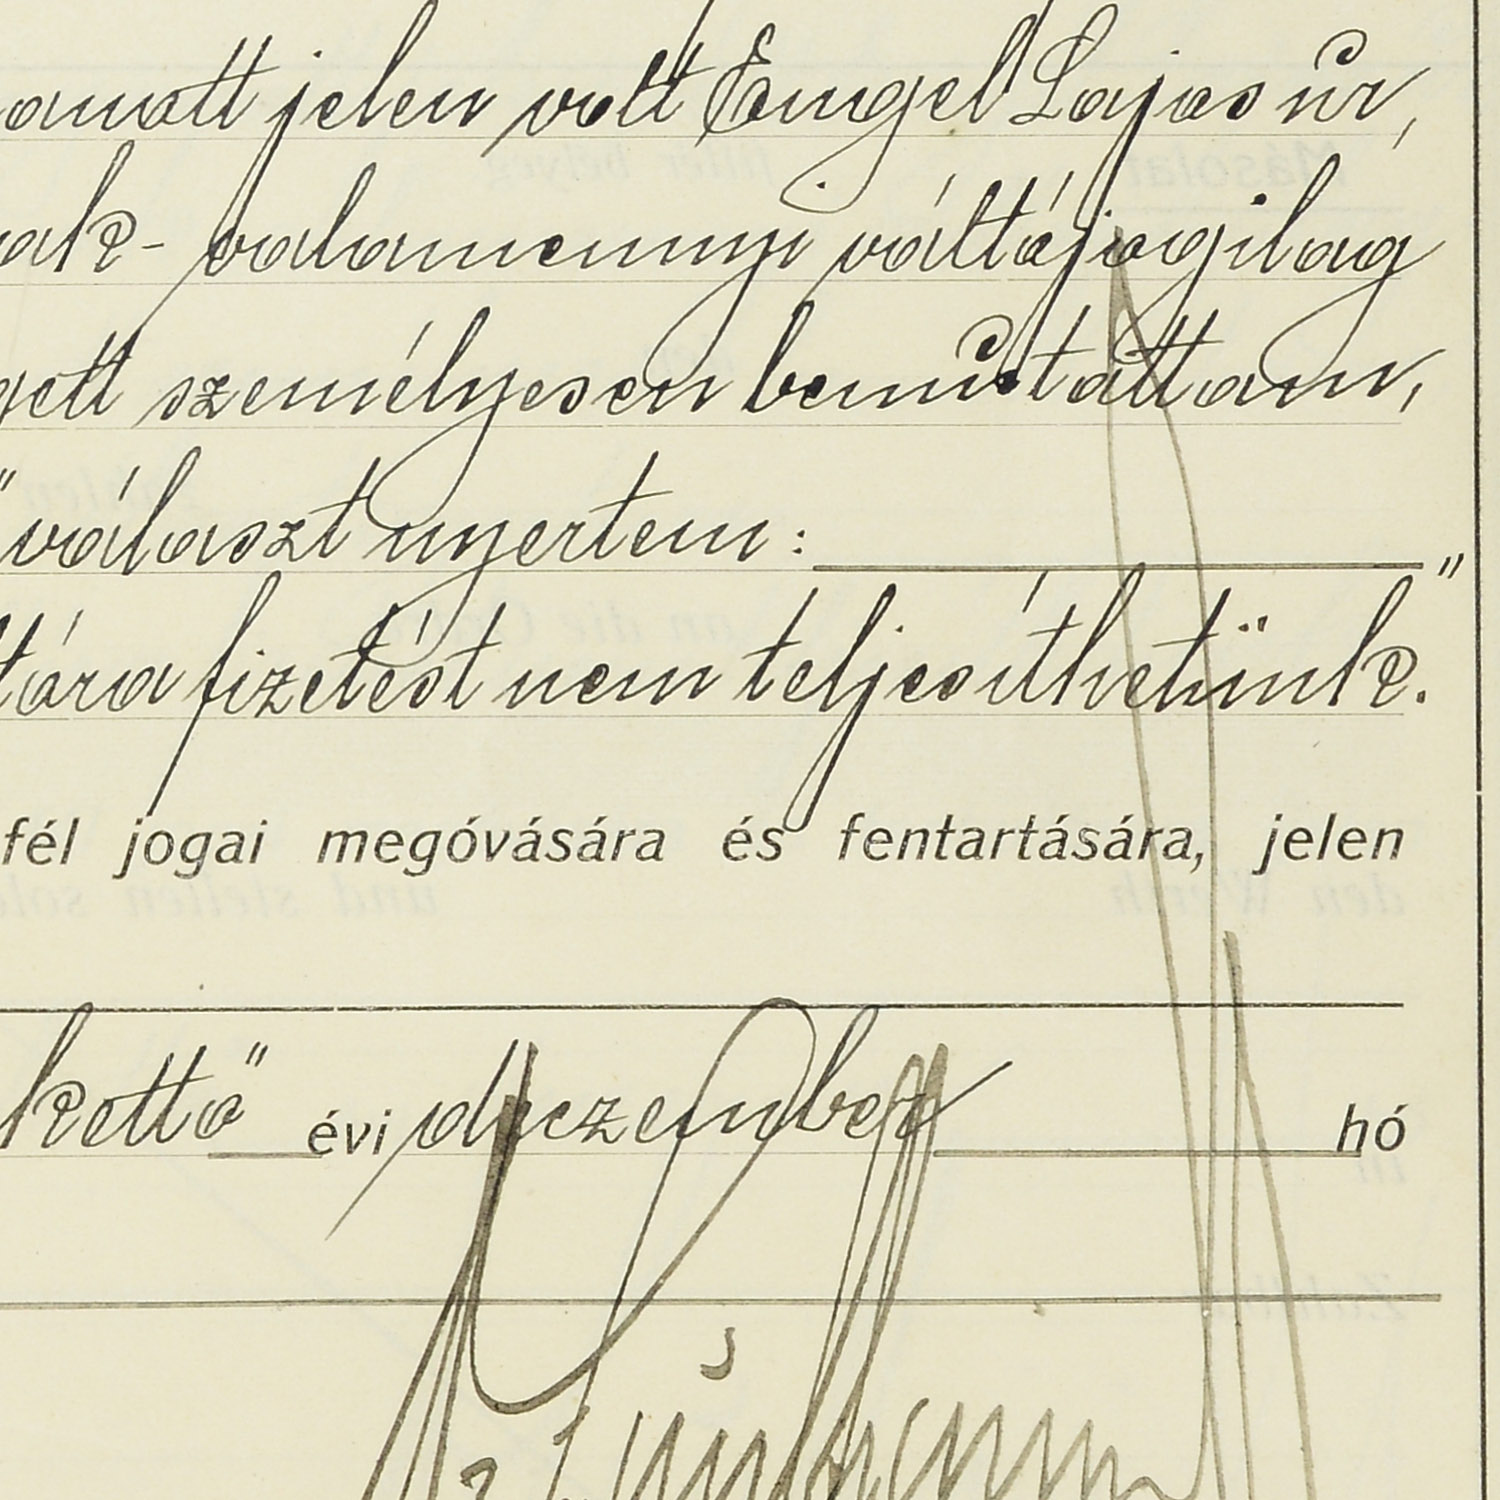 amott jelen volt Engel Lajos úr,
ak- valamennyi váltójogilag
gett személyesen bemutattam,
" választ nyertem: "
tára fizetést nem teljesíthetünk.
fél jogai megóvására és fentartására, jelen
kettő" évi deczember hó